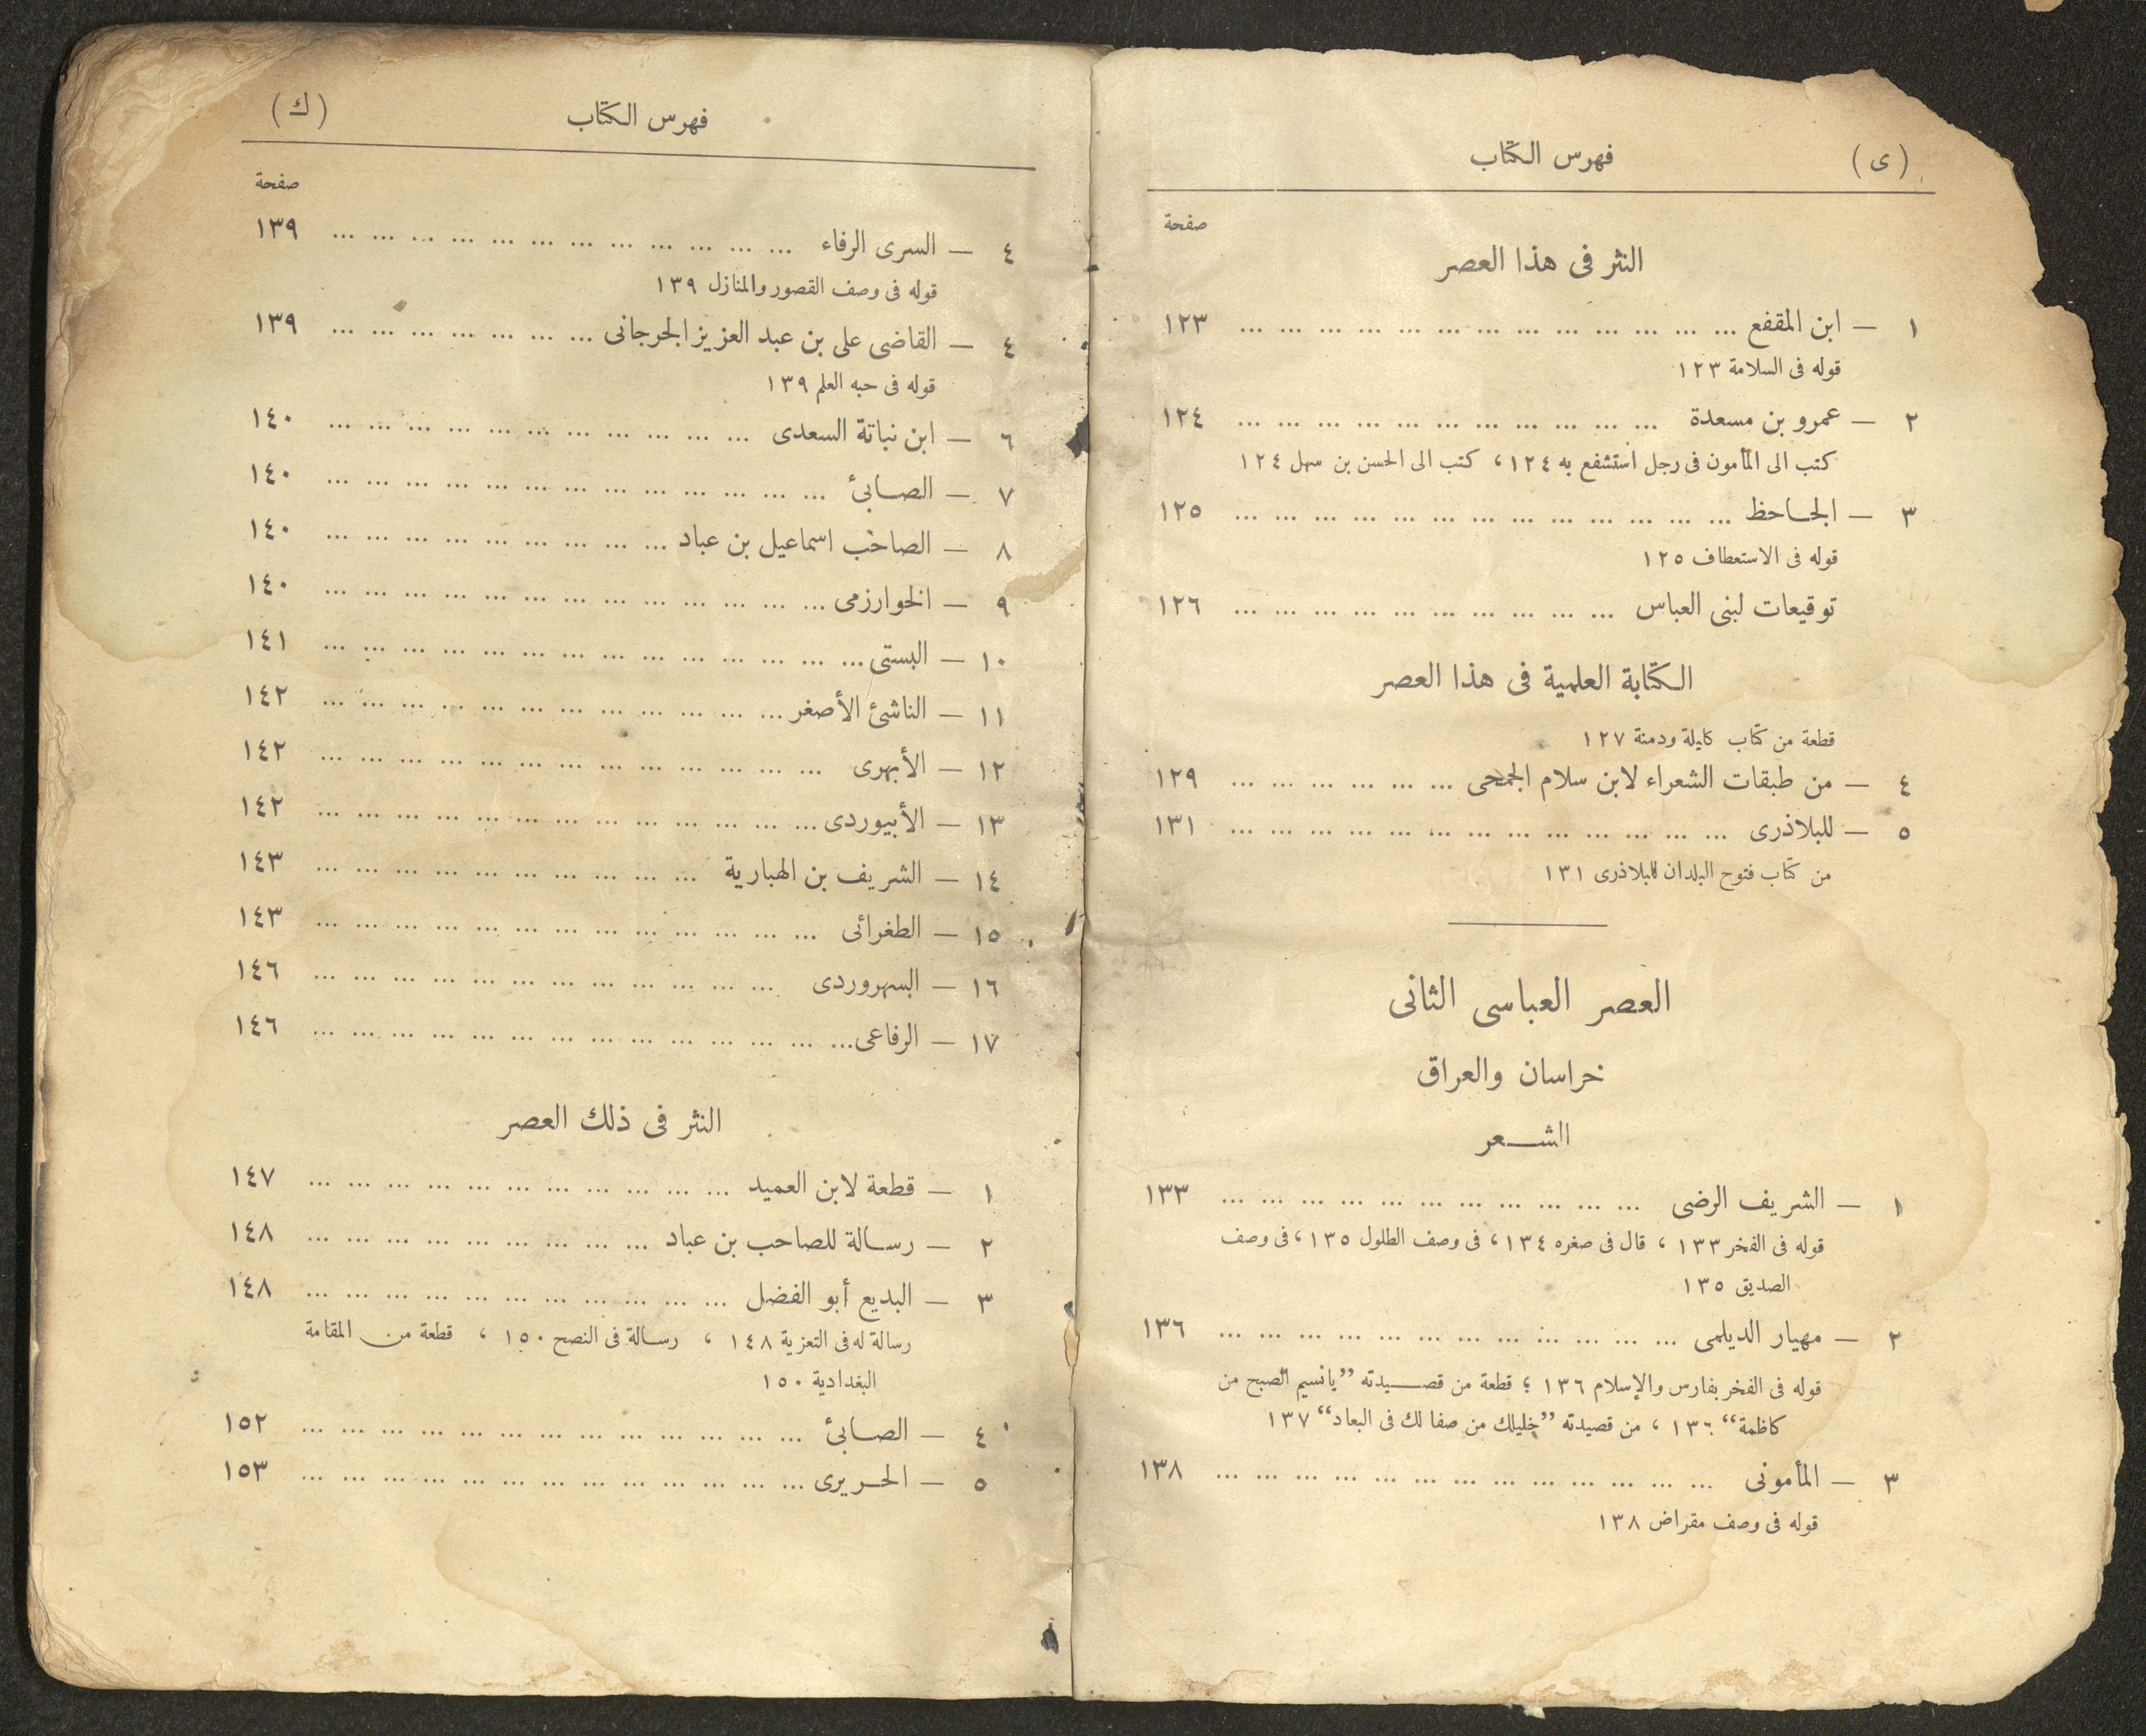 (ى)
فهرس الكتاب
صفحة
النثر فى هذا العصر
١ — ابن المقفع ... ... ... ... ... ... ... ... ... ... ... ... ... ١٢٣
قوله فى السلامة ١٢٣
٢ — عمرو بن مسعدة ... ... ... ... ... ... ... ... ... ... ... ١٢٤
كتب الى المأمون فى رجل استشفع به ١٢٤، كتب الى الحسن بن سهل ١٢٤
٣ — الجاحظ ... ... ... ... ... ... ... ... ... ... ... ... ... ١٢٥
قوله فى الاستعطاف ١٢٥
توقيعات لبنى العباس ... ... ... ... ... ... ... ... ... ... ١٢٦
الكتابة العلمية فى هذا العصر
قطعة من كتاب كليلة ودمنة ١٢٧
٤ — من طبقات الشعراء لابن سلام الجمحى ... ... ... ... ... ... ١٢٩
٥ — للبلاذرى ... ... ... ... ... ... ... ... ... ... ... ... ... ١٣١
من كتاب فتوح البلدان للبلاذرى ١٣١
العصر العباسى الثانى
خراسان والعراق
الشــعر
١ — الشريف الرضى ... ... ... ... ... ... ... ... ... ... ... ١٣٣
قوله فى الفخر ١٣٣ ، قال فى صغره ١٣٤، فى وصف الطلول ١٣٥، فى وصف
الصديق ١٣٥
٢ — مهيار الديلمى ... ... ... ... ... ... ... ... ... ... ... ... ١٣٦
قوله فى الفخر بفارس والإسلام ١٣٦ ؛ قطعة من قصــيدته ”يانسيم الصبح من
كاظمة“ ١٣٦ ، من قصيدته ”خليلك من صفا لك فى البعاد“ ١٣٧
٣ — المأمونى ... ... ... ... ... ... ... ... ... ... ... ... ... ١٣٨
قوله فى وصف مقراض ١٣٨
فهرس الكتاب
(ك)
صفحة
٤ — السرى الرفاء ... ... ... ... ... ... ... ... ... ... ... ... ١٣٩
قوله فى وصف القصور والمنازل ١٣٩
٤ — القاضى على بن عبد العزيز الجرجانى ... ... ... ... ... ... ... ١٣٩
قوله فى حبه العلم ١٣٩
٦ — ابن نباتة السعدى ... ... ... ... ... ... ... ... ... ... ... ١٤٠
٧ — الصــابئ ... ... ... ... ... ... ... ... ... ... ... ... ... ١٤٠
٨ — الصاحب اسماعيل بن عباد ... ... ... ... ... ... ... ... ... ١٤٠
٩ — الخوارزمى ... ... ... ... ... ... ... ... ... ... ... ... ... ١٤٠
١٠ — البستى ... ... ... ... ... ... ... ... ... ... ... ... ... ... ١٤١
١١ — الناشئ الأصغر ... ... ... ... ... ... ... ... ... ... ... ... ١٤٢
١٢ — الأبهرى ... ... ... ... ... ... ... ... ... ... ... ... ... ١٤٢
١٣ — الأبيوردى ... ... ... ... ... ... ... ... ... ... ... ... ... ١٤٢
١٤ — الشريف بن الهبارية ... ... ... ... ... ... ... ... ... ... ١٤٣
١٥ — الطغرائى ... ... ... ... ... ... ... ... ... ... ... ... ... ١٤٣
١٦ — السهروردى ... ... ... ... ... ... ... ... ... ... ... ... ١٤٦
١٧ — الرفاعى ... ... ... ... ... ... ... ... ... ... ... ... ... ... ١٤٦
النثر فى ذلك العصر
١ — قطعة لابن العميد ... ... ... ... ... ... ... ... ... ... ... ١٤٧
٢ — رسـالة للصاحب بن عباد ... ... ... ... ... ... ... ... ... ١٤٨
٣ — البديع أبو الفضل ... ... ... ... ... ... ... ... ... ... ... ١٤٨
رسالة له فى التعزية ١٤٨ ، رسـالة فى النصح ١٥٠ ، قطعة من المقامة
البغدادية ١٥٠
٤ — الصــابئ ... ... ... ... ... ... ... ... ... ... ... ... ... ١٥٢
٥ — الحــريرى ... ... ... ... ... ... ... ... ... ... ... ... ... ١٥٣